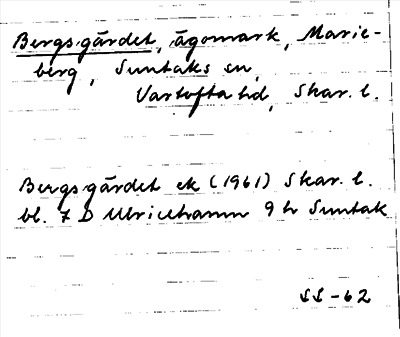 Bergsgärdet, ägomark, Marie-
berg, Suntaks sn,
Vartofta hd, Skar. l.
Bergsgärdet ek (1961) Skar. l.
bl. 7 D Ulricehamn 9 h Suntak
SS-62